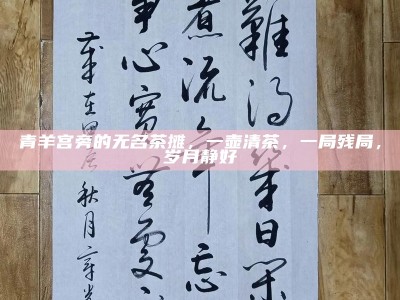 青羊宫旁的无名茶摊，一壶清茶，一局残局，
岁月静好
難得日閑
煮流年忘
事心寬處
歲在甲辰秋月